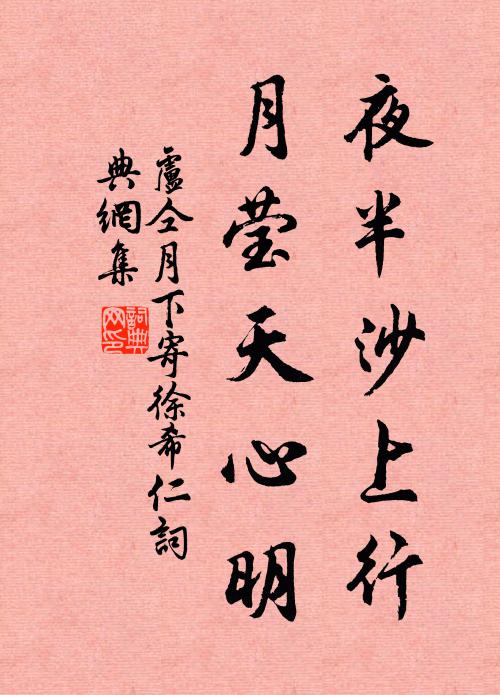 夜半沙上行
月莹天心明
盧仝月下寄徐希仁詞
典網集
詞典网印